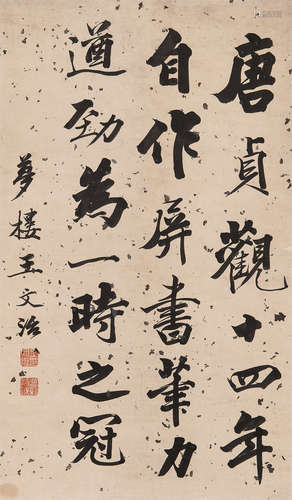 唐貞觀十四年
自作屏書筆力
遒勁為一時之冠
夢樓王文治